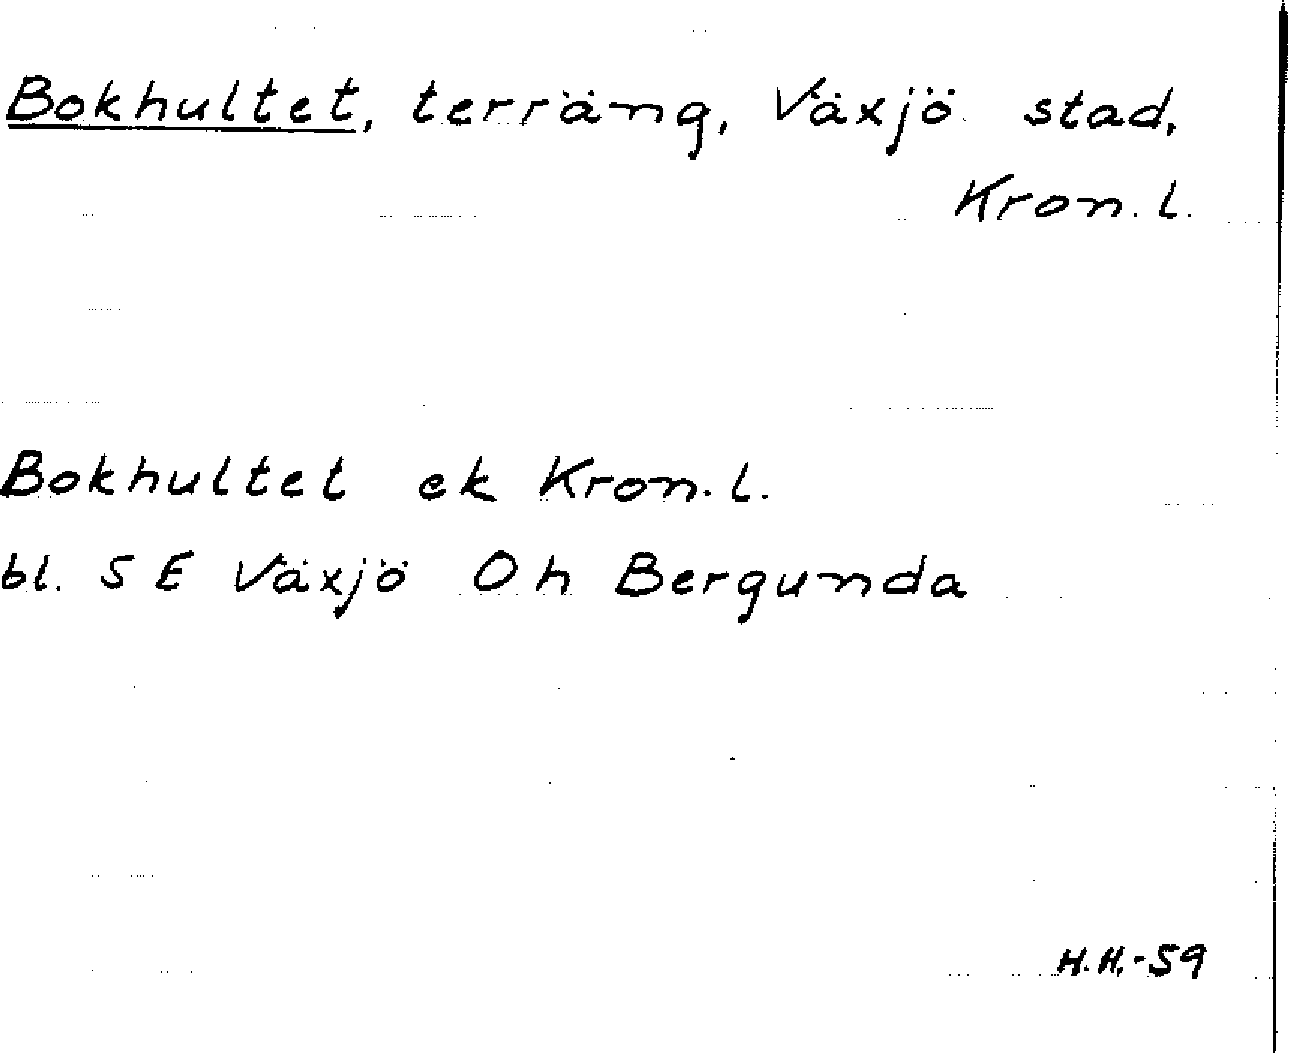 Bokhultet, terräng, Växjö stad,
Kron. l.
Bokhultet ek Kron. l.
bl. 5 E Växjö Oh Bergunda
H.H.-59